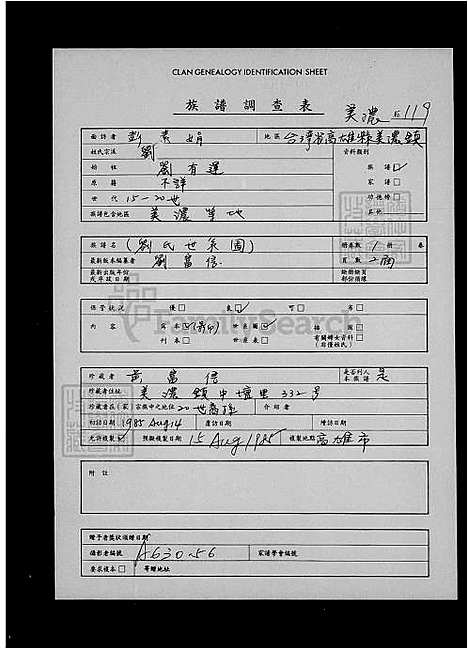 CLAN GENEALOGY IDENTIFICATION SHEET
族譜調查表
美濃 119
面訪者 彭素娟 地區 台灣省高雄縣美濃鎮
姓氏宗派 劉 資料類別
始祖 劉有運 族譜☑
原籍 不詳 家譜☐
世代 15-20世 功德榜☐
族譜包含地區 美濃等地 其他
族譜名 (劉氏世系圖) 冊卷數 1 冊 卷
最新版本編纂者 劉富信 頁數
最新出版年份或序跋日期 缺冊缺頁部份損壞
保管狀況 優☐ 良☑ 可☐ 劣☐
內容 寫本☑(影印) 世系圖☑ 插圖☐
刊本☐ 世系表☐ 有關婦女資料(非僅姓氏)☐
FamilySearch
珍藏者 黃富信 是否列入本族譜 是
珍藏者住址 美濃鎮中壇里332號
珍藏者在(家)宗族中之地位 20世裔孫 介紹者
初訪日期 1985 Aug 14 覆訪日期 續訪日期
允許複製☑ 預擬複製日期 15 Aug 1985 複製地點 高雄市
附註
贈予者獎狀頒贈日期
攝影者編號 A630-56 家譜學會編號
要求複本☐ 寄贈地址